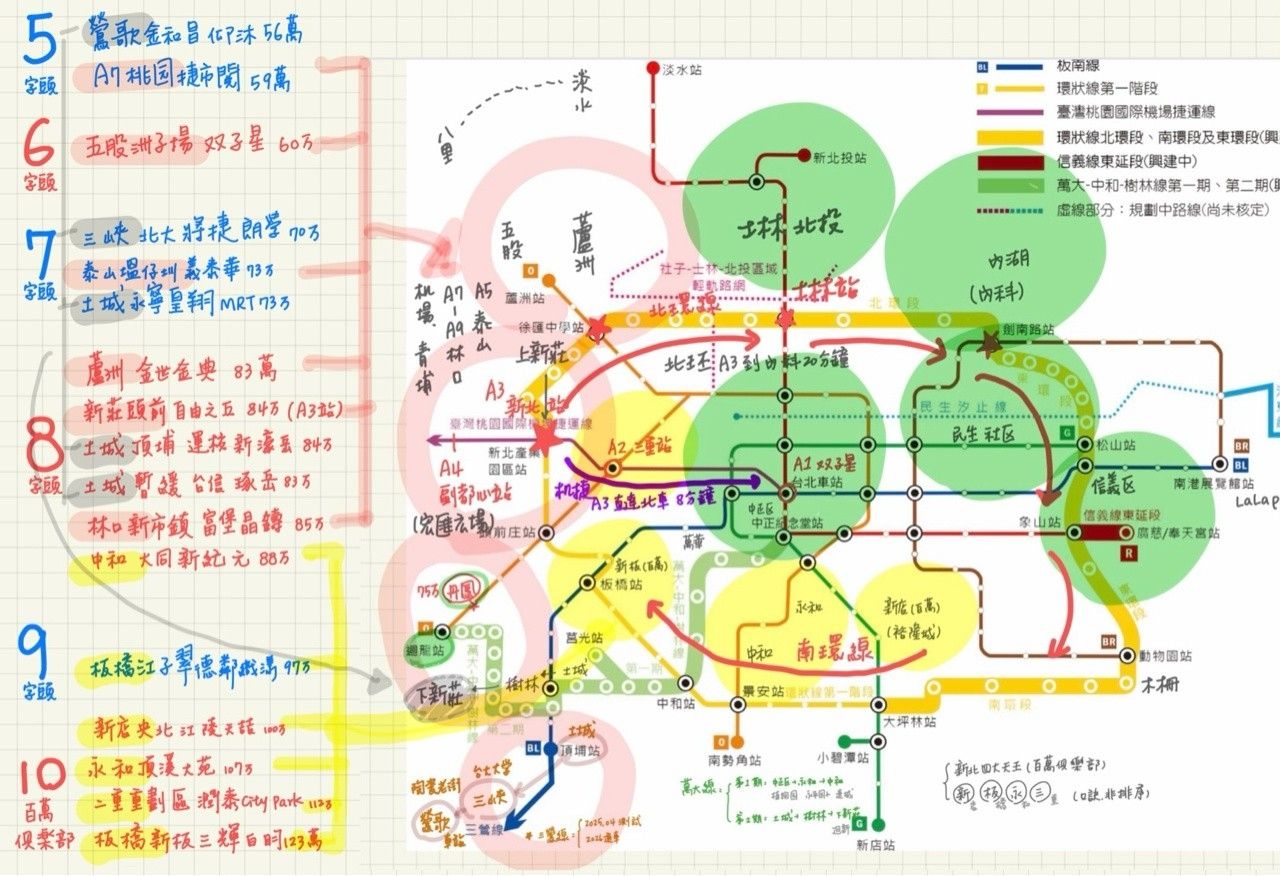 5
字頭
鶯歌金和昌仰沐 56萬
A7 桃园捷市閱 59萬
6
字頭
五股洲子場 双子星 60万
7
字頭
三峽 北大 將捷 朗學 70万
泰山塭仔圳 義泰華 73万
土城永寧皇翔 MRT 73万
8
字頭
蘆洲 金世金典 83萬
新莊頭前 自由之丘 84万 (A3站)
土城 頂埔 運校新濠丟 84万
土城 暫緩 合信 琢岳 83万
林口 新市鎮 富堡晶鑄 85万
中和 大同新紀元 88万
9
字頭
板橋江子翠德鄰織漾 97万
10
百萬
俱樂部
新店央北 江陵天喆 100万
永和頂溪大苑 107万
二重重劃區 潤泰City Park 112万
板橋新板三輝白昀 123萬
BL 板南線
Y 環狀線第一階段
臺灣桃園國際機場捷運線
環狀線北環段、南環段及東環段(興
信義線東延段(興建中)
萬大-中和-樹林線第一期、第二期(興
虛線部分：規劃中路線(尚未核定)
淡水站
淡水
八里
新北投站
士林 北投
內湖
(內科)
五股
蘆洲
社子-士林-北投區域
輕軌路網
O
蘆洲站
徐匯中學站
北环環線
士林站
北環段
劍南路站
機場
青埔
A7-A9 林口
A5 泰山
上新莊
A3
新北站
北环 A3 到內科20分鐘
東環段
臺灣桃園國際機場捷運線
新北產業
園區站
A2 三重站
民生汐止線
民生社区
G
松山站
BR
BL
南港展覽館站
LaLap
A4
副都心站
(宏匯広場)
机捷
A3 直達北車 8分鐘
A1 双子星
台北車站
中正区
中正紀念堂站
信義区
信義線東延段
象山站
廣慈/奉天宮站
R
頭前庄站
萬華
新板(百萬)
板橋站
萬大-中和-樹林線
75万
丹鳳
O
迴龍站
永和
新店(百萬)
(裕隆城)
中和
南環線
東環段
BR
動物園站
木柵
莒光站
土城
第一期
下新莊
樹林
萬大-中和-樹林線
第二期
中和站
景安站
環狀線第一階段
大坪林站
南環段
BL
頂埔站
土城
O
南勢角站
小碧潭站
陶瓷老街
台北大学
三峽
鶯歌
車站
三鶯線
*三鶯線 {2025.04 測試
2026通車
萬大線 = {第1期：中正→永和→中和
植物園 永平国小 莒城
第二期：土城→樹林→下新莊
迴龍
G
新店站
新北四大天王(百萬俱樂部)
新 板 永 三 (口訣.非排序)